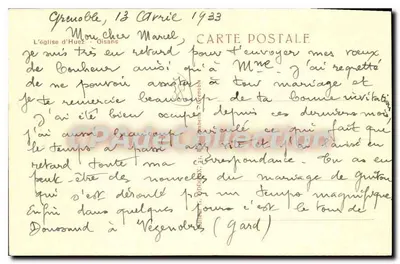 Grenoble, 13 Avril 1933
L'église d'Huez - Oisans
CARTE POSTALE
Mon cher Marcel,
je suis très en retard pour t'envoyer mes vœux
de bonheur ainsi qu'à Mme. j'ai regretté
de ne pouvoir assister à ton mariage et
je te remercie beaucoup de ta bonne invitation
J'ai été bien occupé depuis ces derniers mois
j'ai aussi beaucoup ce qui fait que
le temps passe vite et que j'ai mis en
retard toute ma correspondance. Tu as eu
peut-être des nouvelles du mariage de
qui s'est déroulé par un temps magnifique
Enfin dans quelques jours c'est le tour de
à (Gard)